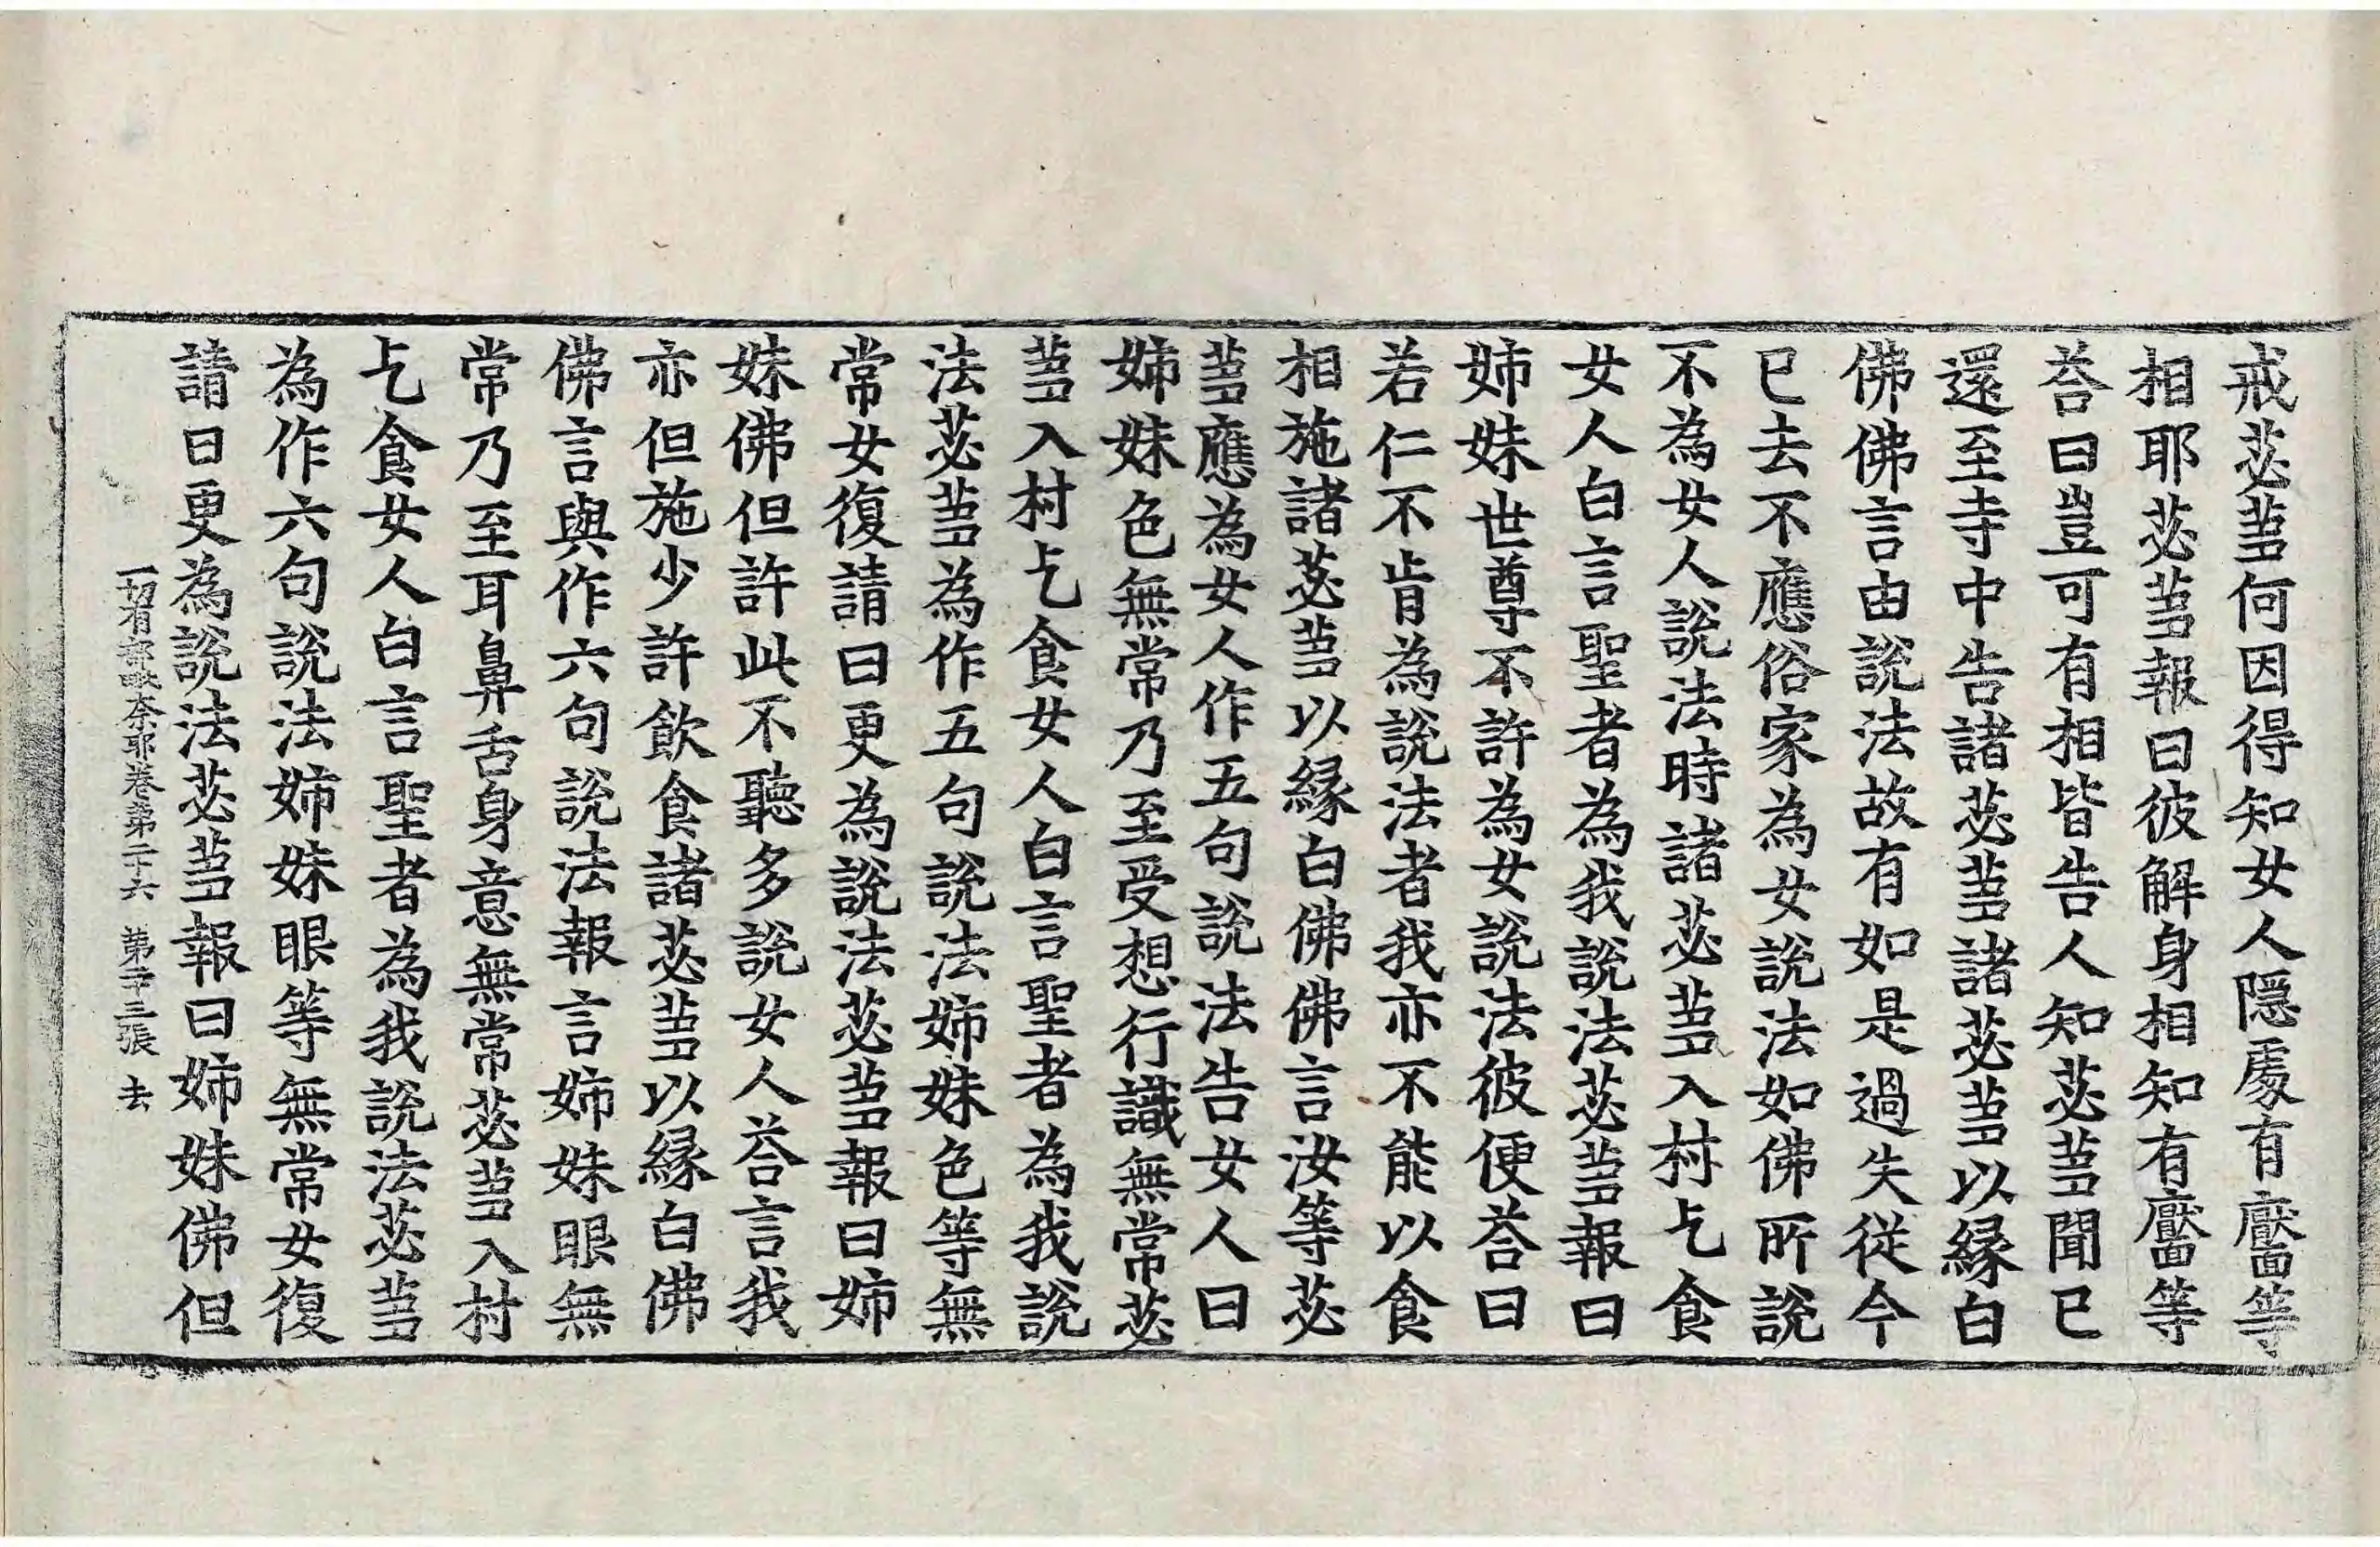 戒苾蒭何因得知女人隱處有黶等
相耶苾蒭報曰彼解身相知有黶等
荅曰豈可有相皆告人知苾蒭聞已
還至寺中告諸苾蒭諸苾蒭以緣白
佛佛言由說法故有如是過失從今
已去不應俗家為女說法如佛所說
不為女人說法時諸苾蒭入村乞食
女人白言聖者為我說法苾蒭報曰
姉妹世尊不許為女說法彼便荅曰
若仁不肯為說法者我亦不能以食
相施諸苾蒭以緣白佛佛言汝等苾
蒭應為女人作五句說法告女人曰
姉妹色無常乃至受想行識無常苾
蒭入村乞食女人白言聖者為我說
法苾蒭為作五句說法姉妹色等無
常女復請曰更為說法苾蒭報曰姉
妹佛但許此不聽多說女人荅言我
亦但施少許飲食諸苾蒭以緣白佛
佛言與作六句說法報言姉妹眼無
常乃至耳鼻舌身意無常苾蒭入村
乞食女人白言聖者為我說法苾蒭
為作六句說法姉妹眼等無常女復
請曰更為說法苾蒭報曰姉妹佛但
一切有部毗奈耶卷第三十六 第二十三張 去